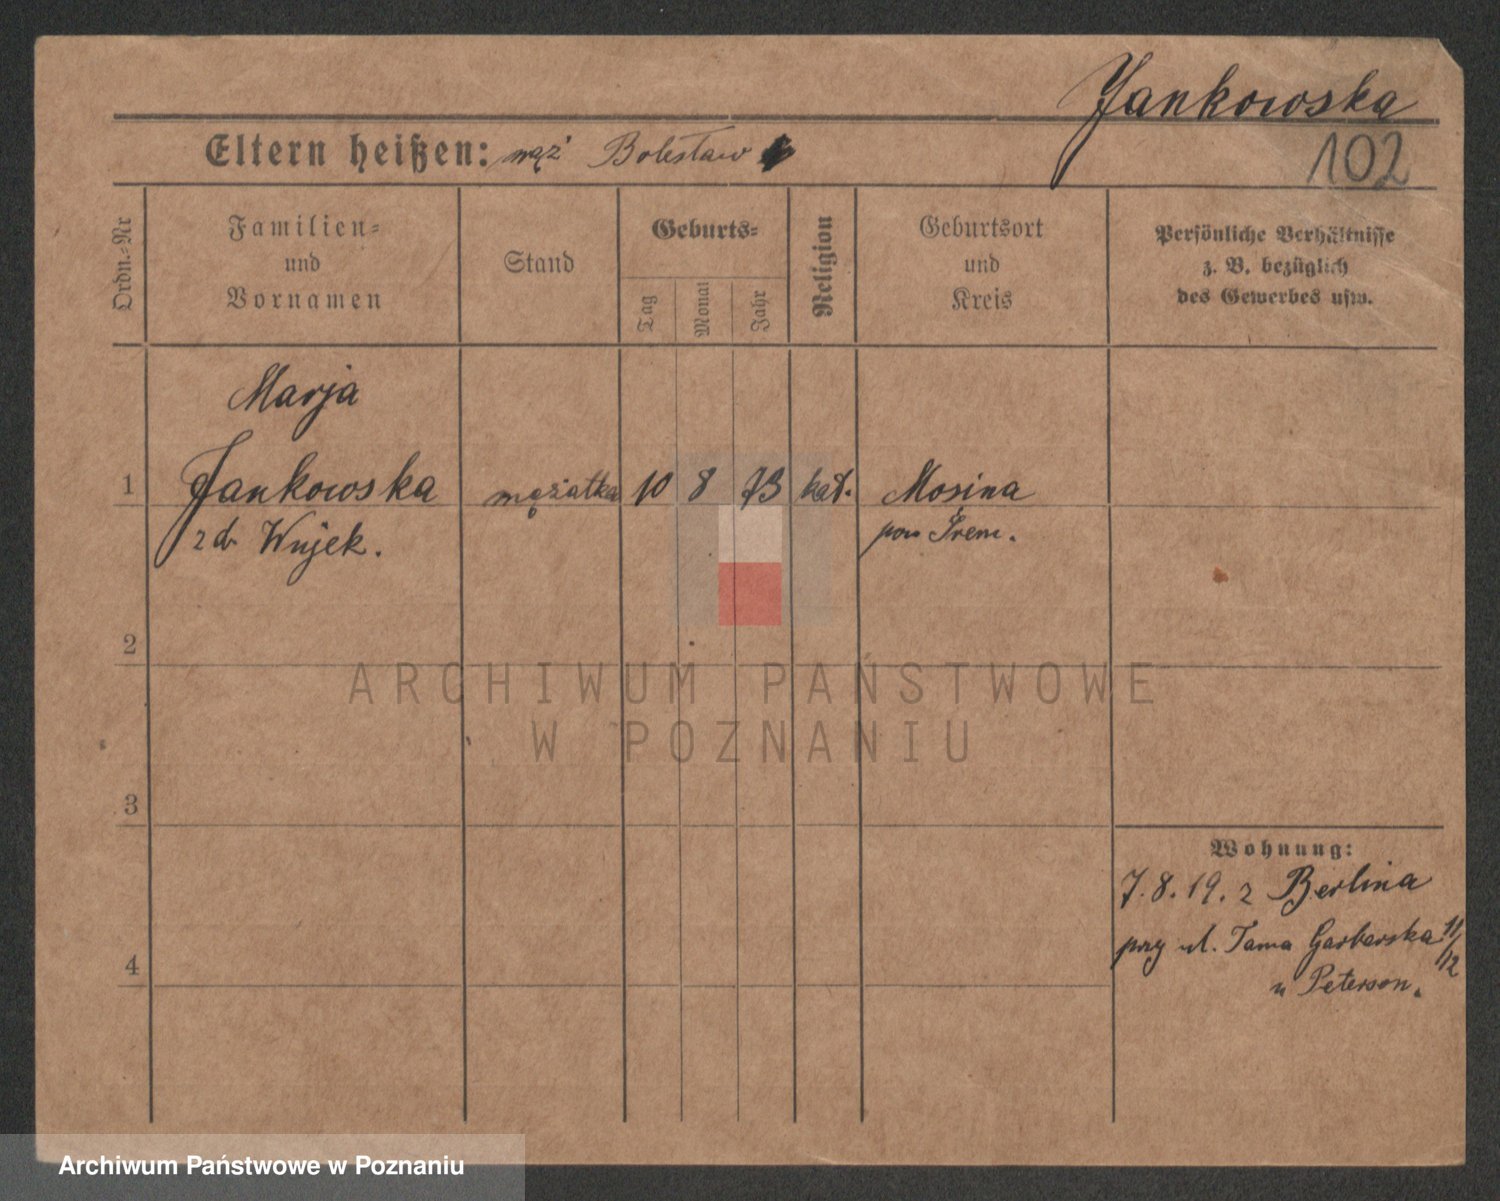 Jankowska
102
Eltern heißen: mąż Bolesław
Ordn.-Nr
Familien-
und
Vornamen
Stand
Geburts-
Tag
Monat
Jahr
Religion
Geburtsort
und
Kreis
Persönliche Verhältnisse
z. B. bezüglich
des Gewerbes usw.
Marja
1 Jankowska mężatka 10 8 73 kat. Mosina
z d. Wujek. pow Śrem.
2
3
4
Wohnung:
7.8.19. z Berlina
przy ul. Tama Garbarska 11/12
u Peterson.
ARCHIWUM PAŃSTWOWE
W POZNANIU
Archiwum Państwowe w Poznaniu